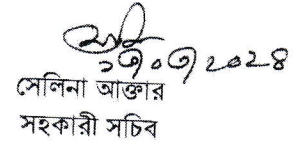 ১৩/০৩/২০২৪
সেলিনা আক্তার
সহকারী সচিব